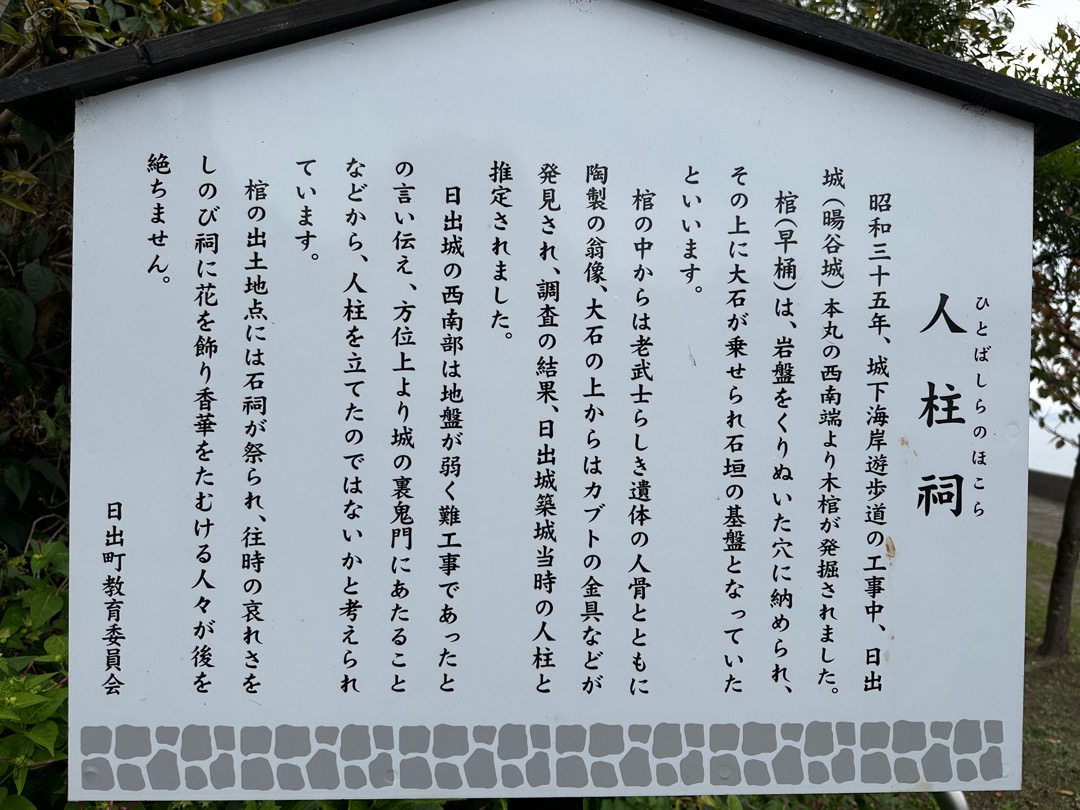 人柱祠
ひとばしらのほこら
昭和三十五年、城下海岸遊歩道の工事中、日出
城（暘谷城）本丸の西南端より木棺が発掘されました。
棺（早桶）は、岩盤をくりぬいた穴に納められ、
その上に大石が乗せられ石垣の基盤となっていた
といいます。
棺の中からは老武士らしき遺体の人骨とともに
陶製の翁像、大石の上からはカブトの金具などが
発見され、調査の結果、日出城築城当時の人柱と
推定されました。
日出城の西南部は地盤が弱く難工事であったと
の言い伝え、方位上より城の裏鬼門にあたること
などから、人柱を立てたのではないかと考えられ
ています。
棺の出土地点には石祠が祭られ、往時の哀れさを
しのび祠に花を飾り香華をたむける人々が後を
絶ちません。
日出町教育委員会